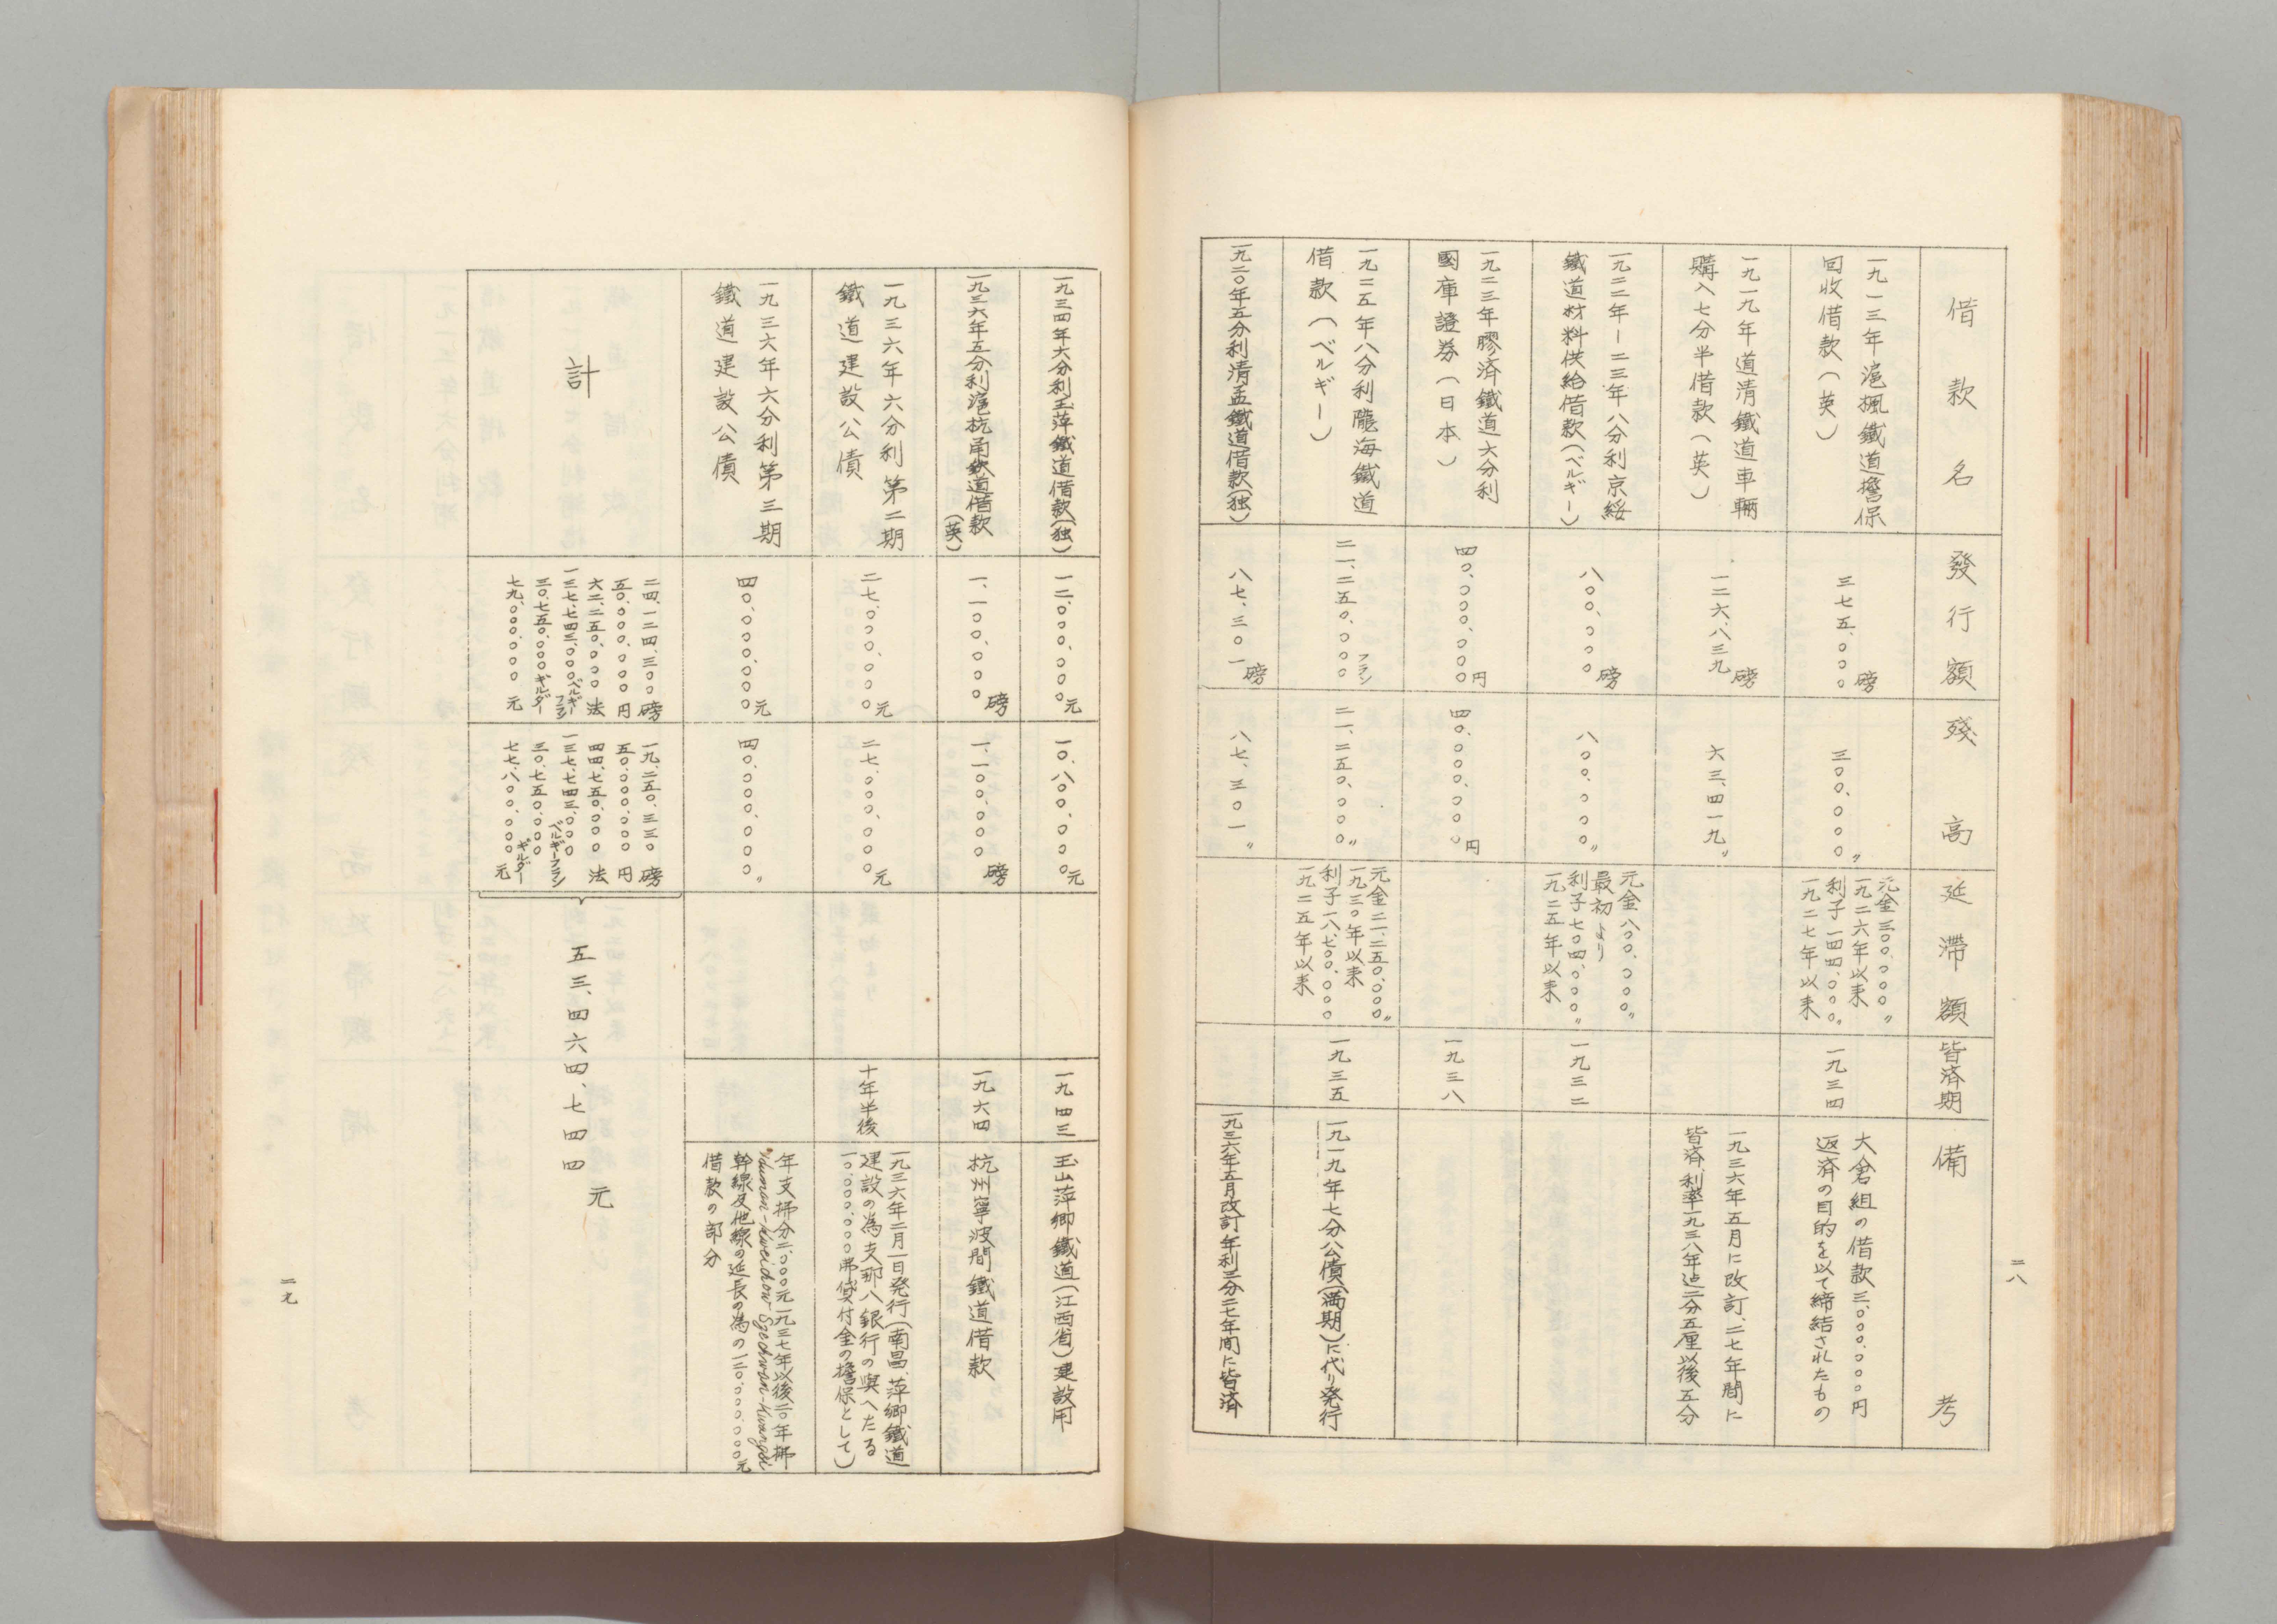 借款名
發行額
殘高
延滯額
皆済期
備考
一九一三年滬楓鐵道擔保
回收借款(英)
三七五、〇〇〇磅
三〇〇、〇〇〇〃
元金三〇〇、〇〇〇〃
一九二六年以来
利子一四四、〇〇〇〃
一九二七年以来
一九三四
大倉組の借款三、〇〇〇、〇〇〇円
返済の目的を以て締結されたもの
一九一九年道清鐵道車輛
購入七分半借款(英)
一二六、八三九磅
六三、四一九〃
一九三六年五月に改訂、二七年間に
皆済、利率一九三八年迠二分五厘以後五分
一九二二年ー二三年八分利京綏
鐵道材料供給借款(ベルギー)
八〇〇、〇〇〇磅
八〇〇、〇〇〇〃
元金八〇〇、〇〇〇〃
最初より
利子七〇四、〇〇〇〃
一九二五年以来
一九三二
一九二三年膠済鐵道六分利
國庫證券(日本)
四〇、〇〇〇、〇〇〇円
四〇、〇〇〇、〇〇〇円
一九三八
一九二五年八分利隴海鐵道
借款(ベルギー)
二一、二五〇、〇〇〇フラン
二一、二五〇、〇〇〇〃
元金二一、二五〇、〇〇〇〃
一九三〇年以来
利子一八、七〇〇、〇〇〇
一九二五年以来
一九三五
一九一九年七分八公債(満期)に代り発行
一九二〇年五分利清孟鐵道借款(独)
八七、三〇一磅
八七、三〇一〃
一九三六年五月改訂年利三分二七年間に皆済
二八
一九三四年六分利玉萍鐵道借款(独)
一二、〇〇〇、〇〇〇元
一〇、八〇〇、〇〇〇元
一九四三
玉山萍郷鐵道(江西省)建設用
一九三六年五分利滬杭甬鉄道借款
(英)
一、一〇〇、〇〇〇磅
一、一〇〇、〇〇〇磅
一九六四
杭州寧波間鐵道借款
一九三六年六分利第二期
鐵道建設公債
二七、〇〇〇、〇〇〇元
二七、〇〇〇、〇〇〇元
十年半後
一九三六年二月一日発行(南昌、萍郷鐵道
建設の為支那八銀行の與へたる
一〇、〇〇〇、〇〇〇弗貸付金の擔保として)
一九三六年六分利第三期
鐵道建設公債
四〇、〇〇〇、〇〇〇元
四〇、〇〇〇、〇〇〇〃
年支拂分二、〇〇〇元一九三七年以後二〇年拂
Hunan-Kweichow-Szechwan-Kwangsi
幹線及他線の延長の為の一二〇、〇〇〇、〇〇〇元
借款の部分
計
二四、一二四、三〇〇磅
五〇、〇〇〇、〇〇〇円
六二、二五〇、〇〇〇法
一三七、七四三、〇〇〇ベルギーフラン
三〇、七五〇、〇〇〇ギルダー
七九、〇〇〇、〇〇〇元
一九、二五〇、三三〇磅
五〇、〇〇〇、〇〇〇円
四四、七五〇、〇〇〇法
一三七、七四三、〇〇〇ベルギーフラン
三〇、七五〇、〇〇〇ギルダー
七七、八〇〇、〇〇〇元
五三、四六四、七四四元
二九